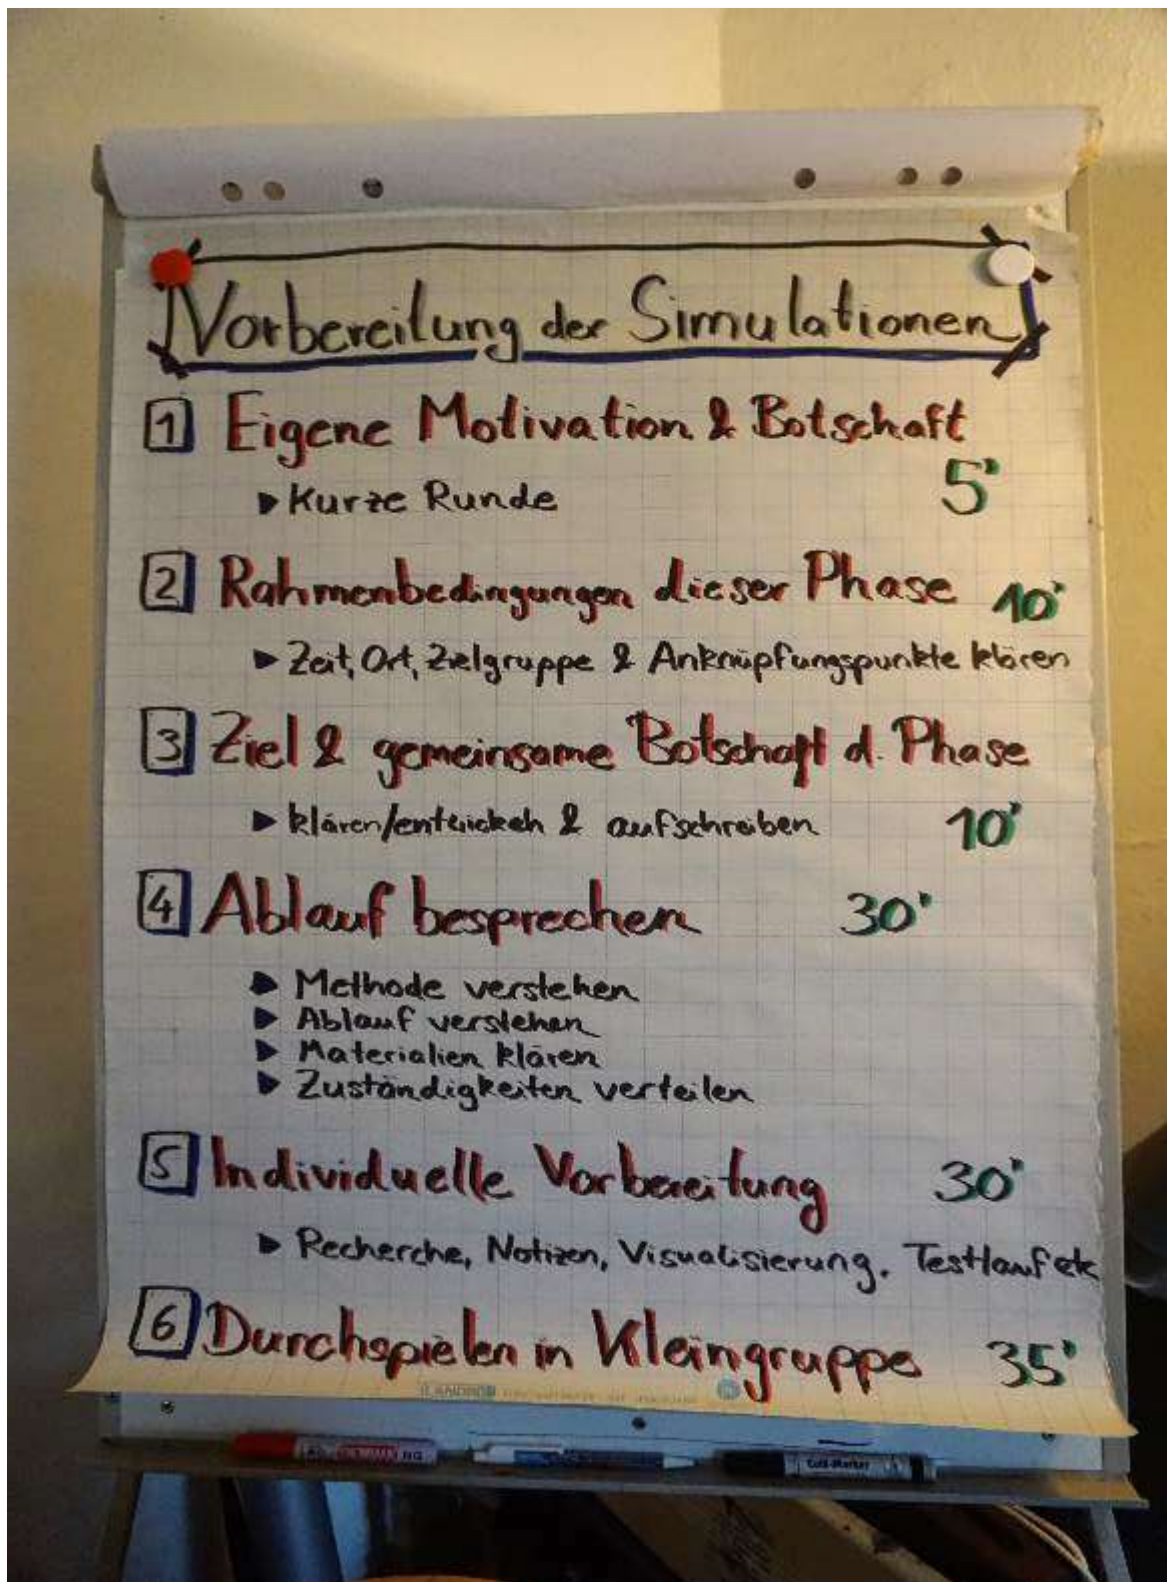 Vorbereitung der Simulationen
1 Eigene Motivation & Botschaft
5'
▶ Kurze Runde
2 Rahmenbedingungen dieser Phase 10'
▶ Zeit, Ort, Zielgruppe & Anknüpfungspunkte klären
3 Ziel & gemeinsame Botschaft d. Phase
▶ klären/entwickeln & aufschreiben 10'
4 Ablauf besprechen 30'
▶ Methode verstehen
▶ Ablauf verstehen
▶ Materialien klären
▶ Zuständigkeiten verteilen
5 Individuelle Vorbereitung 30'
▶ Recherche, Notizen, Visualisierung. Testlauf etc
6 Durchspielen in Kleingruppe 35'